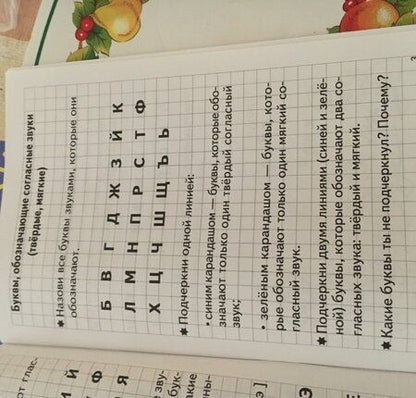 Буквы, обозначающие согласные звуки
(твёрдые, мягкие)
✶ Назови все буквы звуками, которые они
обозначают.
Б В Г Д Ж З Й К
Л М Н П Р С Т Ф
Х Ц Ч Ш Щ Ъ Ь
✶ Подчеркни одной линией:
• синим карандашом — буквы, которые обо-
значают только один твёрдый согласный
звук;
• зелёным карандашом — буквы, кото-
рые обозначают только один мягкий со-
гласный звук.
✶ Подчеркни двумя линиями (синей и зелё-
ной) буквы, которые обозначают два со-
гласных звука: твёрдый и мягкий.
✶ Какие буквы ты не подчеркнул? Почему?
от глас-
Й
Ф
Я
зву-
бук-
акие
ны-
э ]
Э